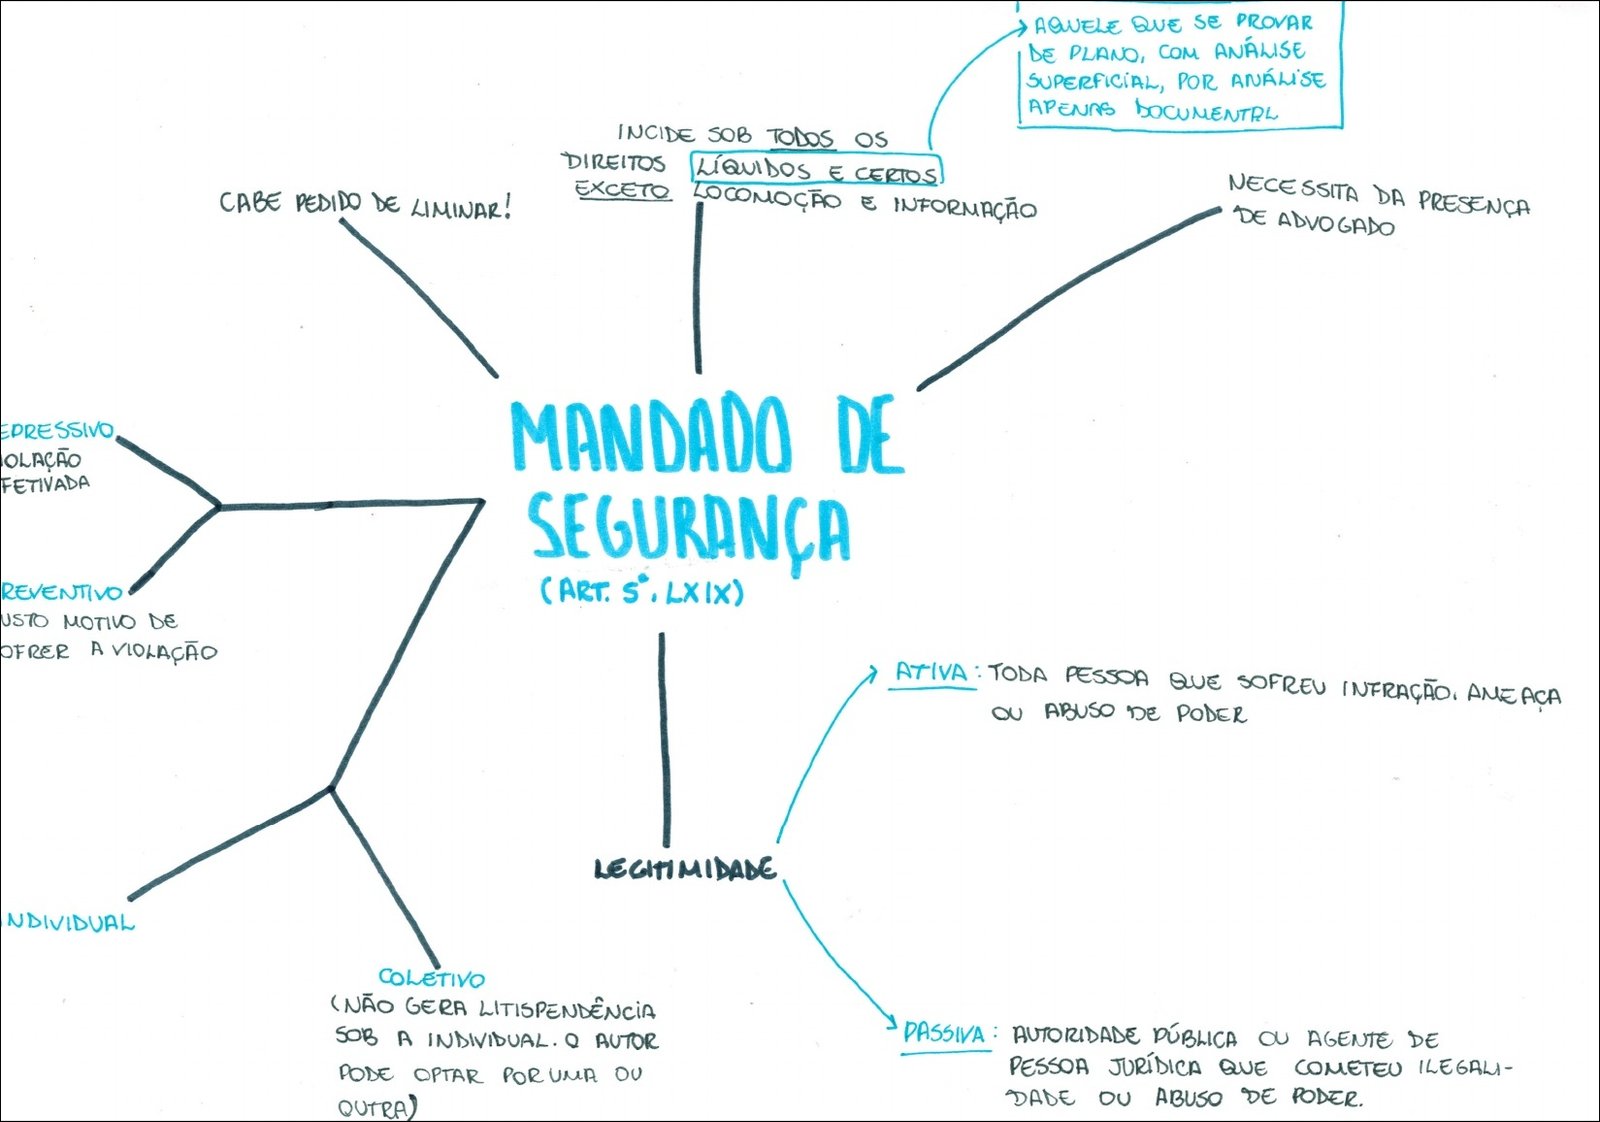 AQUELE QUE SE PROVAR
DE PLANO, COM ANÁLISE
SUPERFICIAL, POR ANÁLISE
APENAS DOCUMENTAL
INCIDE SOB TODOS OS
DIREITOS LÍQUIDOS E CERTOS
EXCETO LOCOMOÇÃO E INFORMAÇÃO
CABE PEDIDO DE LIMINAR!
NECESSITA DA PRESENÇA
DE ADVOGADO
MANDADO DE
SEGURANÇA
(ART. 5º, LXIX)
EPRESSIVO
OLAÇÃO
FETIVADA
REVENTIVO
USTO MOTIVO DE
OFRER A VIOLAÇÃO
ATIVA: TODA PESSOA QUE SOFREU INFRAÇÃO, AMEAÇA
OU ABUSO DE PODER
LEGITIMIDADE
NDIVIDUAL
COLETIVO
(NÃO GERA LITISPENDÊNCIA
SOB A INDIVIDUAL. O AUTOR
PODE OPTAR POR UMA OU
OUTRA)
PASSIVA: AUTORIDADE PÚBLICA OU AGENTE DE
PESSOA JURÍDICA QUE COMETEU ILEGALI-
DADE OU ABUSO DE PODER.